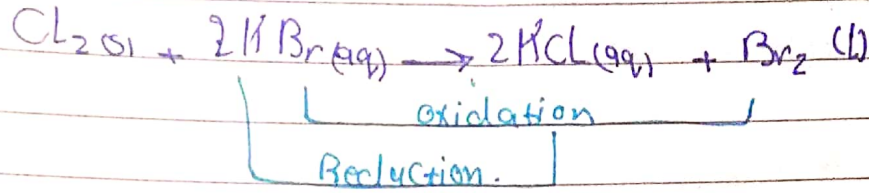 CL₂(s) + 2KBr(aq) → 2KCL(aq) + Br₂ (l)
oxidation
Reduction.